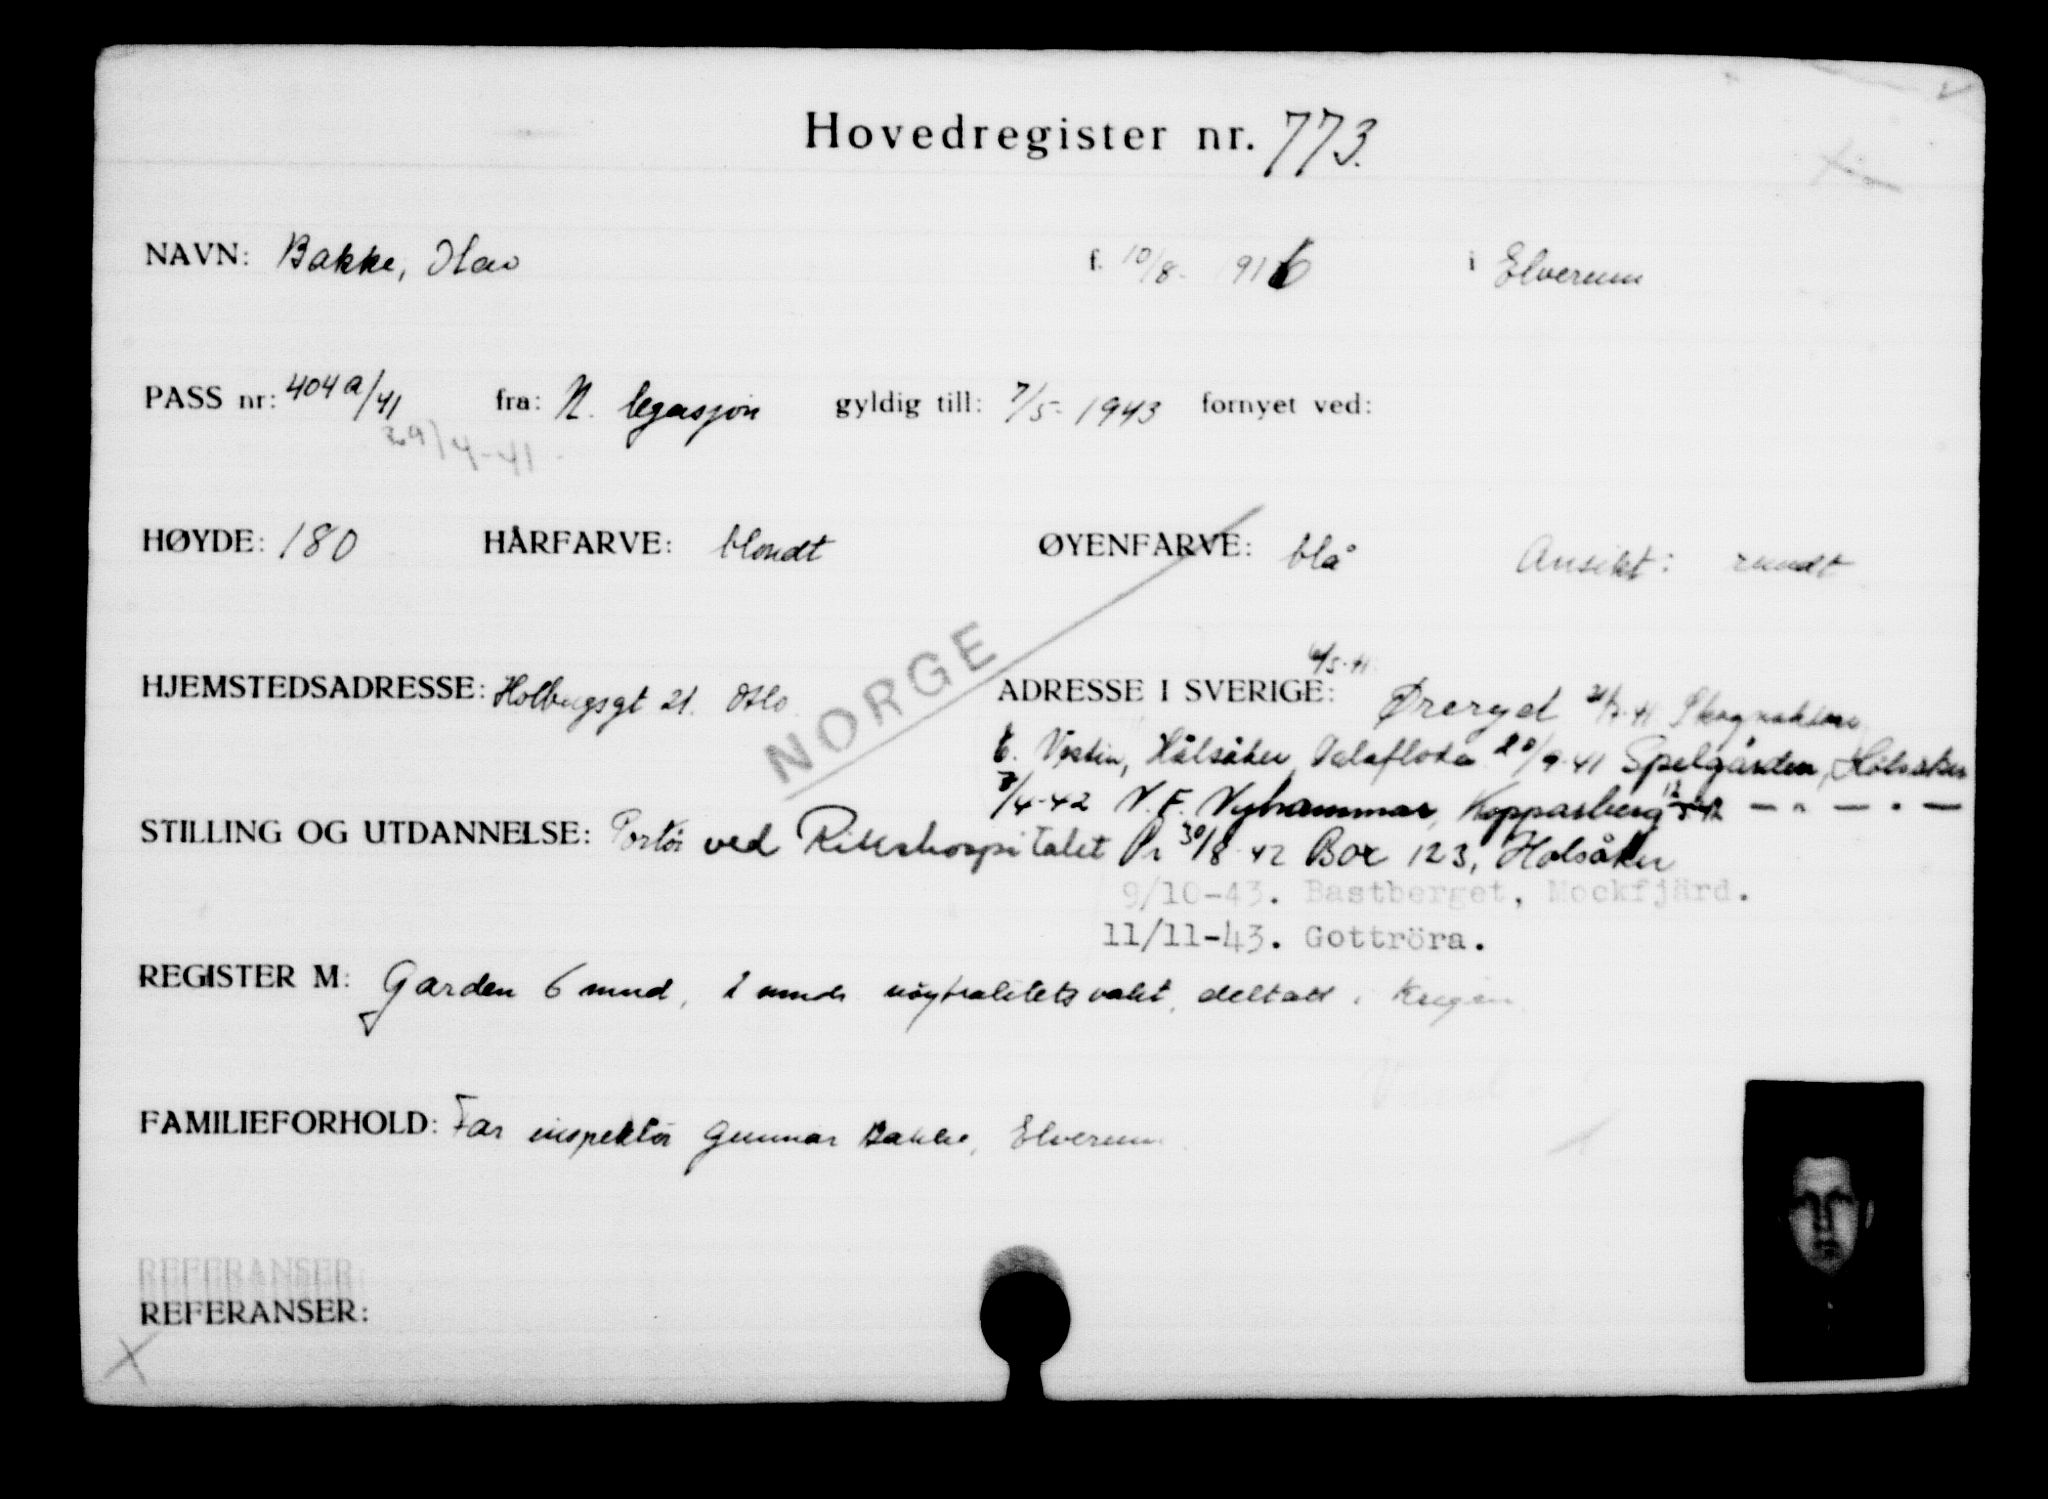 Hovedregister nr. 773.
NAVN: Bakke, Olav f. 10/8- 1916 i Elverum
PASS nr: 404a/41 fra: N. legasjon gyldig till: 7/5- 1943 fornyet ved:
29/4-41
HØYDE: 180 HÅRFARVE: blondt ØYENFARVE: blå Ansikt: rundt
NORGE
6/5-41
HJEMSTEDSADRESSE: Holbergsgt 21. Oslo ADRESSE I SVERIGE: Øreryd 21/7-41
Hålsåker, Dalafloda 20/9-41 Spelgården, Holsåker
7/4-42 V.F. Nyhammar, Kopparberg 12/5-42 — " — " —
STILLING OG UTDANNELSE: Portør ved Rikshospitalet Pr 30/8-42 Box 123, Holsåker
9/10-43. Bastberget, Mockfjärd.
11/11-43. Gottröra.
REGISTER M: Garden 6 mnd, 2 mnds nøytralitetsvakt, deltatt i krigen
FAMILIEFORHOLD: Far inspektør Gunnar Bakke, Elverum
REFERANSER
REFERANSER: